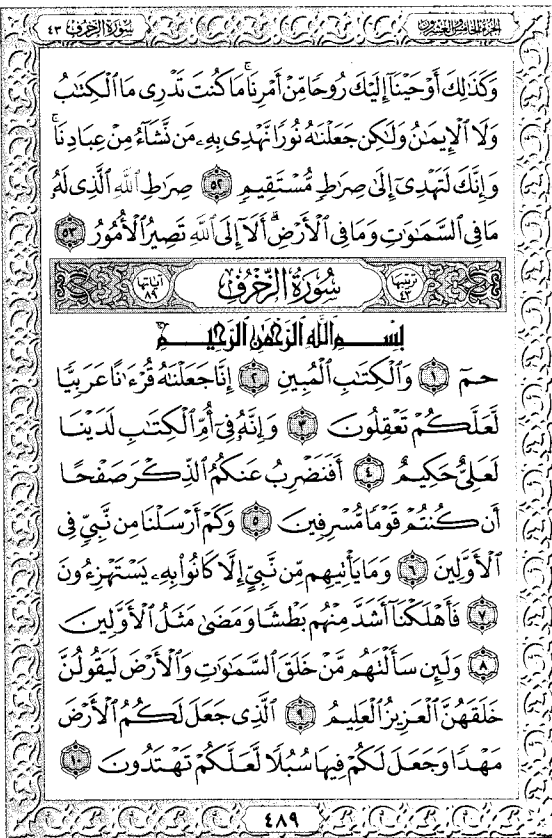 سُورَةُ الزُّخْرُفِ ٤٣
الجزء الخامس والعشرون
وَكَذَٰلِكَ أَوْحَيْنَآ إِلَيْكَ رُوحًا مِّنْ أَمْرِنَا ۚ مَا كُنتَ تَدْرِى مَا ٱلْكِتَٰبُ
وَلَا ٱلْإِيمَٰنُ وَلَٰكِن جَعَلْنَٰهُ نُورًا نَّهْدِى بِهِۦ مَن نَّشَآءُ مِنْ عِبَادِنَا ۚ
وَإِنَّكَ لَتَهْدِىٓ إِلَىٰ صِرَٰطٍ مُّسْتَقِيمٍ ٥٢ صِرَٰطِ ٱللَّهِ ٱلَّذِى لَهُۥ
مَا فِى ٱلسَّمَٰوَٰتِ وَمَا فِى ٱلْأَرْضِ ۗ أَلَآ إِلَى ٱللَّهِ تَصِيرُ ٱلْأُمُورُ ٥٣
ترتيبها ٤٣ سُورَةُ الزُّخْرُفِ آياتها ٨٩
بِسْمِ ٱللَّهِ ٱلرَّحْمَٰنِ ٱلرَّحِيمِ
حمٓ ١ وَٱلْكِتَٰبِ ٱلْمُبِينِ ٢ إِنَّا جَعَلْنَٰهُ قُرْءَٰنًا عَرَبِيًّا
لَّعَلَّكُمْ تَعْقِلُونَ ٣ وَإِنَّهُۥ فِىٓ أُمِّ ٱلْكِتَٰبِ لَدَيْنَا
لَعَلِىٌّ حَكِيمٌ ٤ أَفَنَضْرِبُ عَنكُمُ ٱلذِّكْرَ صَفْحًا
أَن كُنتُمْ قَوْمًا مُّسْرِفِينَ ٥ وَكَمْ أَرْسَلْنَا مِن نَّبِىٍّ فِى
ٱلْأَوَّلِينَ ٦ وَمَا يَأْتِيهِم مِّن نَّبِىٍّ إِلَّا كَانُوا۟ بِهِۦ يَسْتَهْزِءُونَ
٧ فَأَهْلَكْنَآ أَشَدَّ مِنْهُم بَطْشًا وَمَضَىٰ مَثَلُ ٱلْأَوَّلِينَ
٨ وَلَئِن سَأَلْنَهُم مَّنْ خَلَقَ ٱلسَّمَٰوَٰتِ وَٱلْأَرْضَ لَيَقُولُنَّ
خَلَقَهُنَّ ٱلْعَزِيزُ ٱلْعَلِيمُ ٩ ٱلَّذِى جَعَلَ لَكُمُ ٱلْأَرْضَ
مَهْدًا وَجَعَلَ لَكُمْ فِيهَا سُبُلًا لَّعَلَّكُمْ تَهْتَدُونَ ١٠
٤٨٩